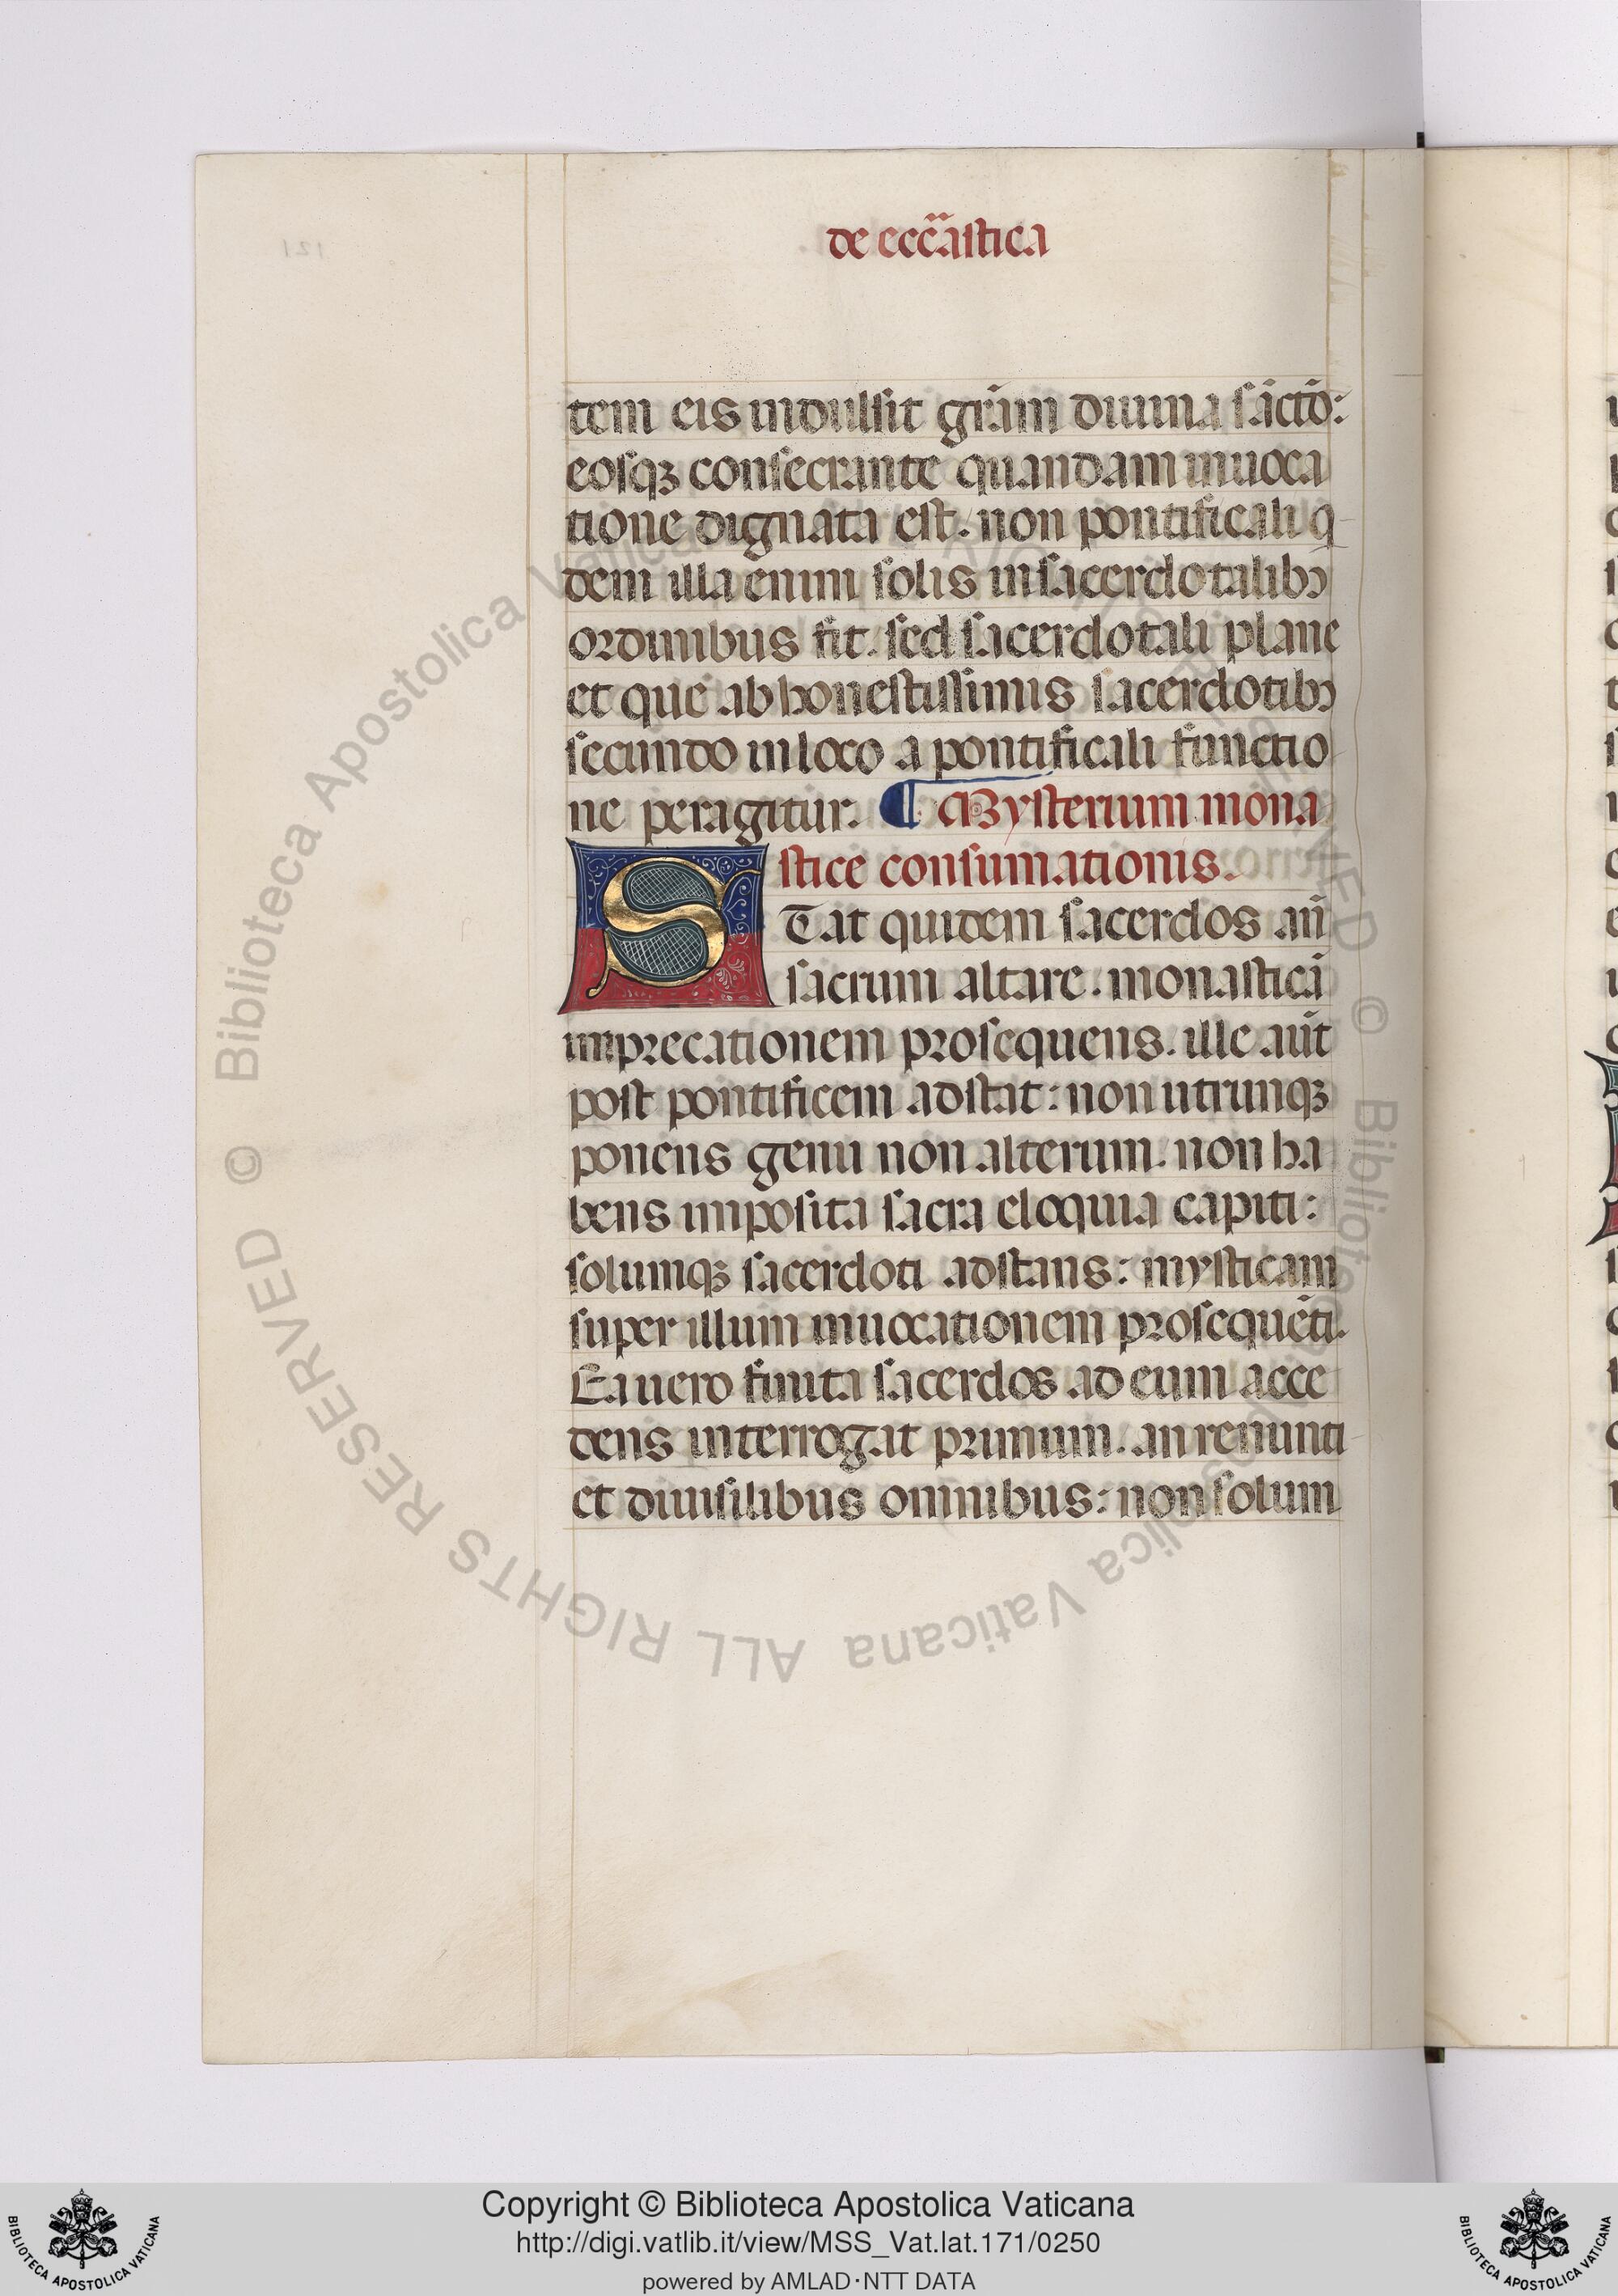 de ecc̃astica
tem eis indulsit gr̃am diuina sãctõ:
eosqꝫ consecrante quandam inuoca
tione dignata est. non pontificali q
dem illa enim solis in sacerdotalibꝫ
ordinibus fit. sed sacerdotali plane
et que ab honestissimis sacerdotibꝫ
secundo in loco a pontificali functio
ne peragitur. ¶ Mysterium mona
stice consumationis.
STat quidem sacerdos añ
sacrum altare. monasticā
imprecationem prosequens. ille aũt
post pontificem adstat: non utrunqꝫ
ponens genu non alterum. non ha
bens imposita sacra eloquia capiti:
solumqꝫ sacerdoti adstans: mysticam
super illum inuocationem prosequēti.
Ea uero finita sacerdos ad eum acce
dens interrogat primum. an renunti
et diuisilibus omnibus: non solum
121
© Biblioteca Apostolica Vaticana ALL RIGHTS RESERVED
Copyright © Biblioteca Apostolica Vaticana
http://digi.vatlib.it/view/MSS_Vat.lat.171/0250
powered by AMLAD·NTT DATA
BIBLIOTECA APOSTOLICA VATICANA
BIBLIOTECA APOSTOLICA VATICANA